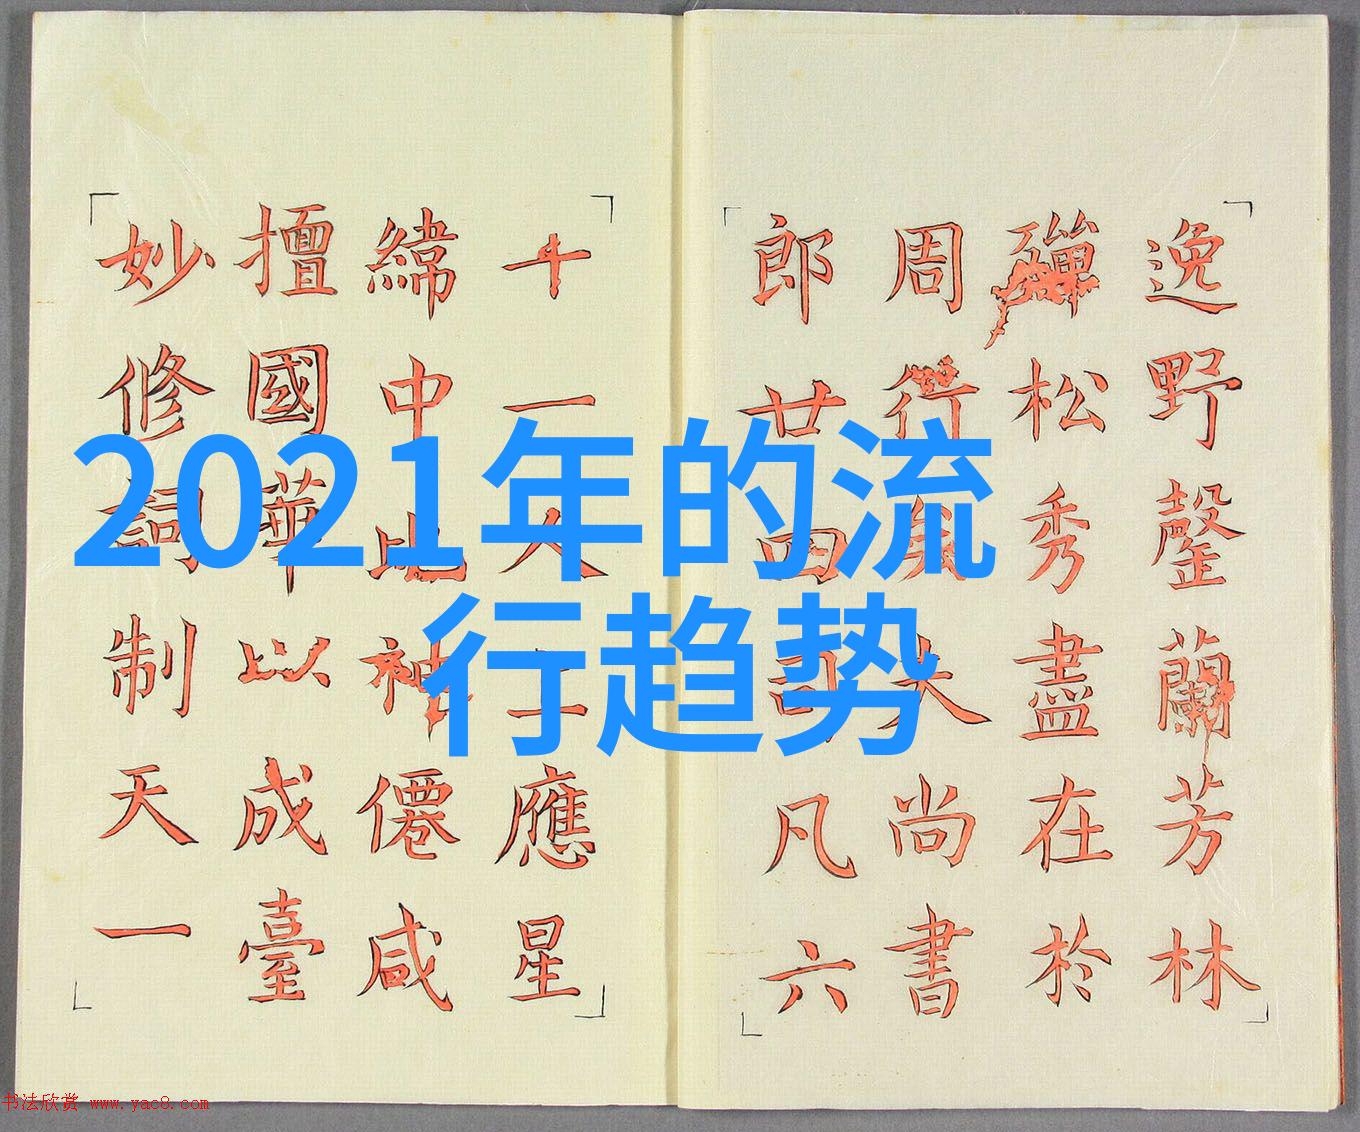 2021年的流
行趋势
逸野罄蘭芳林
殫松秀盡在於
周行尚書
郎廿四司凡六
十一人應星
緯中比神僊咸
擅國華以成臺
妙修詞制天一
书法欣赏 www.yac8.com